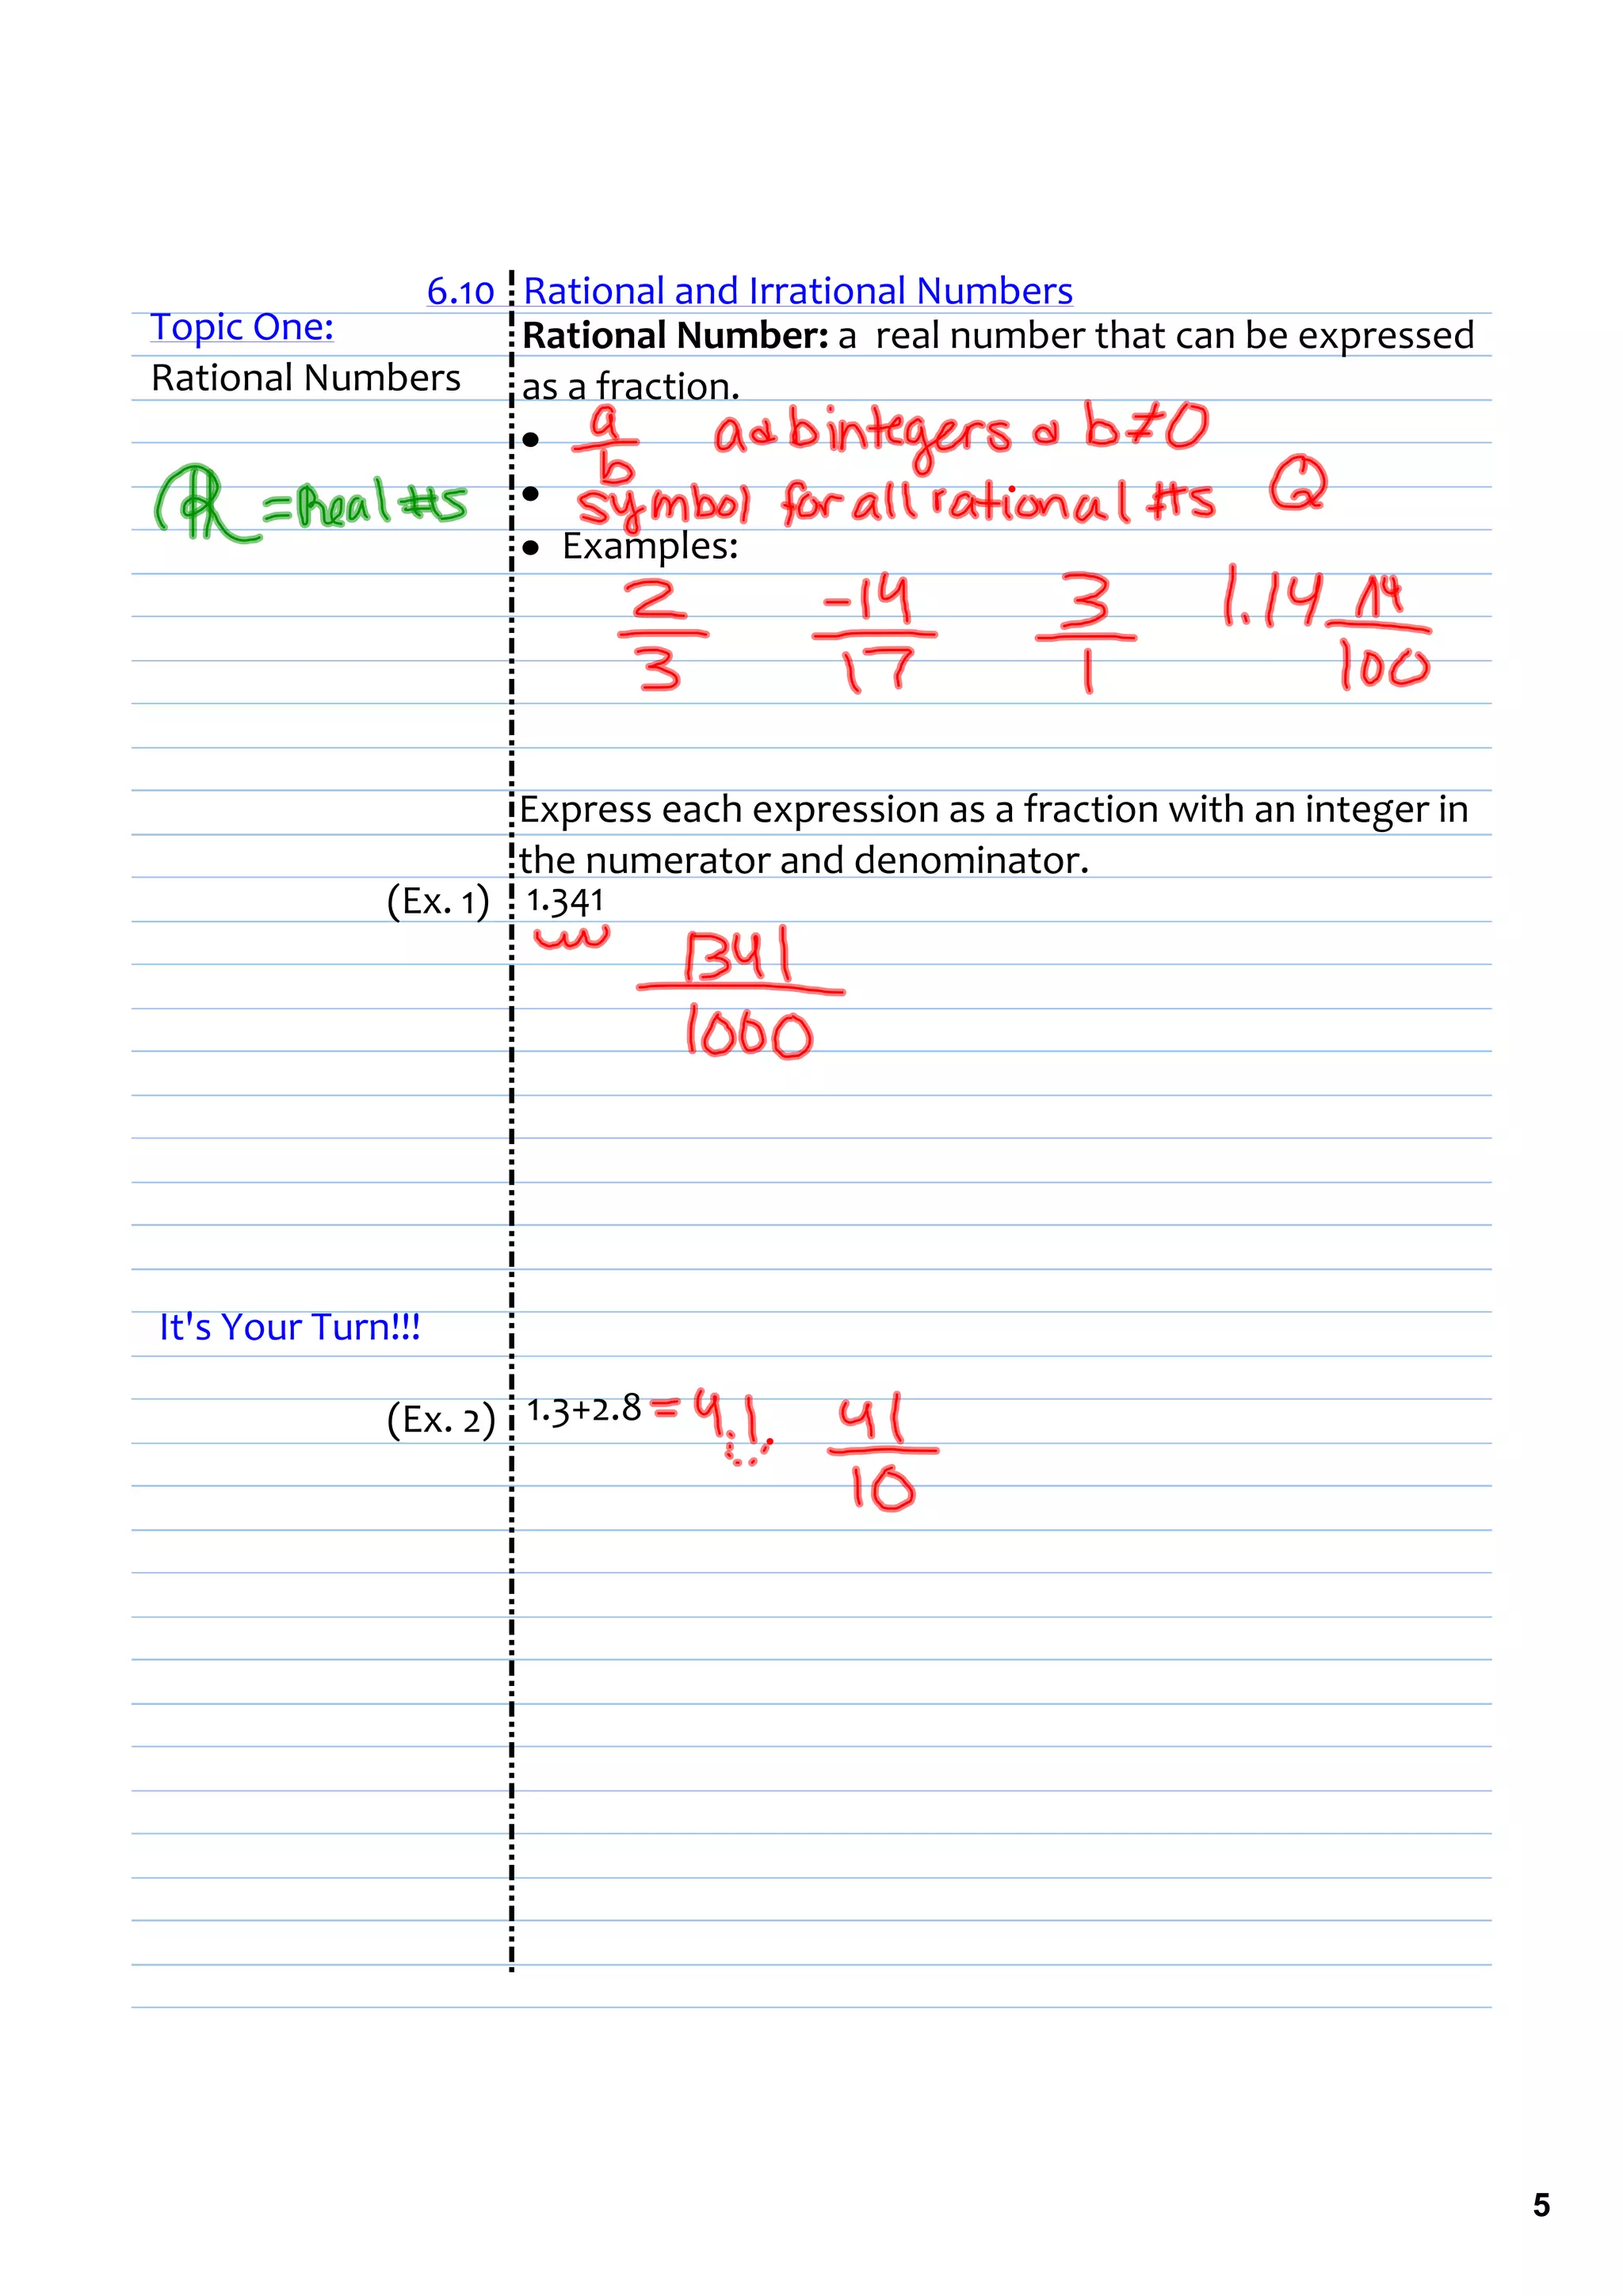 6.10 Rational and Irrational Numbers
Topic One:
Rational Numbers
Rational Number: a real number that can be expressed
as a fraction.
• a/b a & b integers & b ≠ 0
ℝ = Real #s
• symbol for all rational #s Q
• Examples:
2/3 -14/17 3/1 1.14 14/100
Express each expression as a fraction with an integer in
the numerator and denominator.
(Ex. 1) 1.341
1341/1000
It's Your Turn!!!
(Ex. 2) 1.3+2.8 = 4.1 41/10
5